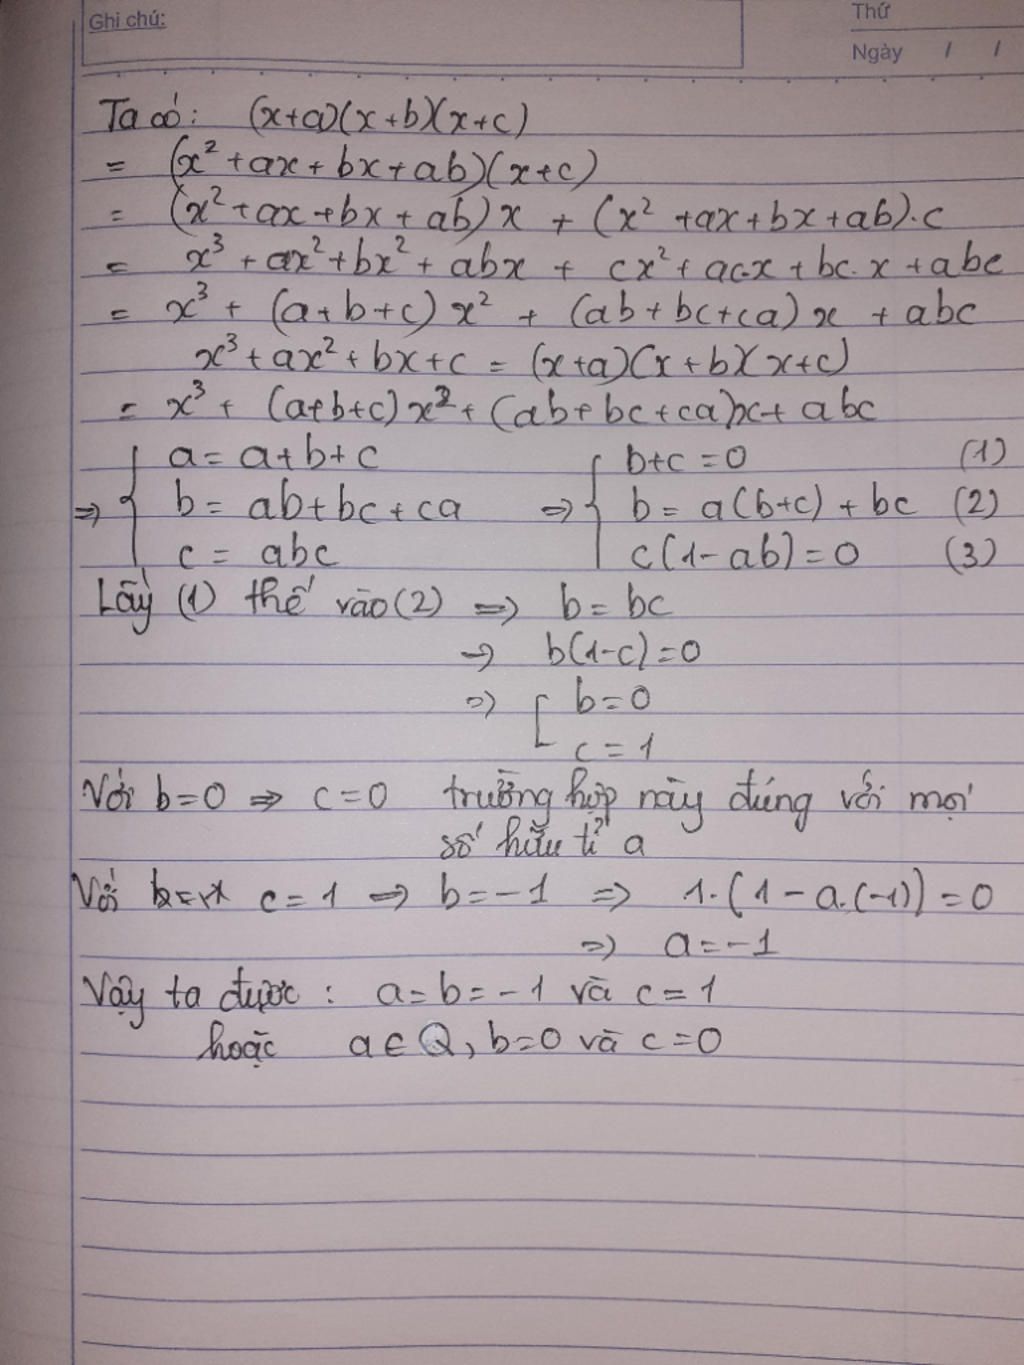 Ghi chú:
Thứ
Ngày / /
Ta có: (x+a)(x+b)(x+c)
= (x²+ax+bx+ab)(x+c)
= (x²+ax+bx+ab)x + (x²+ax+bx+ab).c
= x³+ax²+bx²+abx + cx²+ac.x+bc.x+abc
= x³+(a+b+c)x² + (ab+bc+ca)x +abc
x³+ax²+bx+c = (x+a)(x+b)(x+c)
= x³+ (a+b+c)x²+(ab+bc+ca)x+abc
a=a+b+c b+c=0 (1)
⇒ { b=ab+bc+ca ⇒ { b=a(b+c)+bc (2)
c=abc c(1-ab)=0 (3)
Lấy (1) thế vào (2) ⇒ b=bc
⇒ b(1-c)=0
⇒ [ b=0
c=1
Với b=0 ⇒ c=0 trường hợp này đúng với mọi
số hữu tỉ a
Với c=1 ⇒ b=-1 ⇒ 1.(1-a.(-1))=0
⇒ a=-1
Vậy ta được: a=b=-1 và c=1
hoặc a∈Q, b=0 và c=0